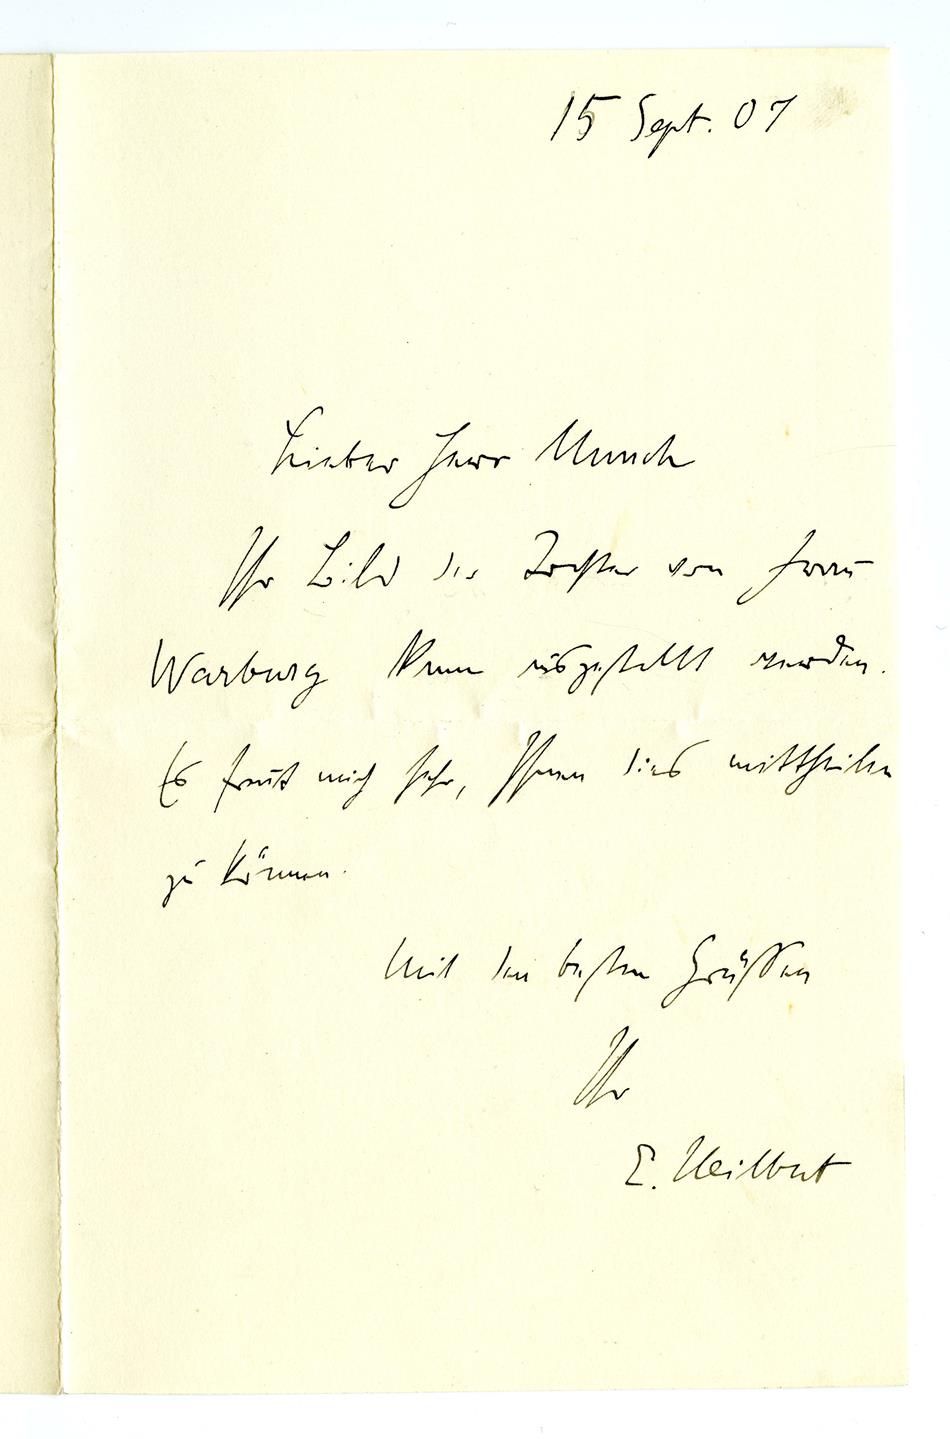 15 Sept. 07
Lieber Herr Munch
Ihr Bild der Tochter von Frau
Warburg kann ausgestellt werden.
Es freut mich sehr, Ihnen dies mittheilen
zu können.
Mit den besten Grüßen
Ihr
E. Heilbut